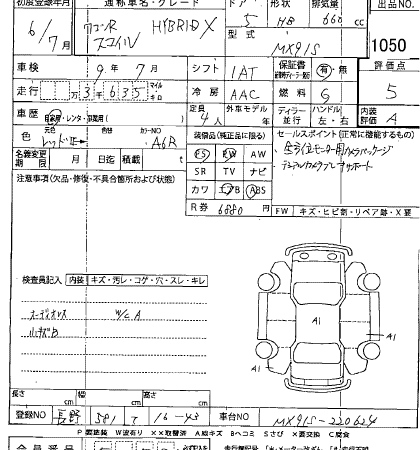 初度登録年月 通称車名・グレード ドア 形状 排気量 出品NO.
6/7月 ワゴンR スマイル HYBRID X 5 HB 660 cc
型式 MX91S 1050
車検 9年 7月 シフト 1AT 保証書 有・無 評価点
走行 3千635 マイル キロ 冷房 AAC 燃料 G 5
車歴 自家用・レンタ・ 定員 4人 外車モデル ディーラー 並行 ハンドル 左・右 内装評価 A
色 元色 カラーNO A6R
装備品(純正品に限る) セールスポイント(正常に機能するもの)
名義変更期限 月 日迄 積載 t PS PW AW
全方位モニター用カメラパッケージ
SR TV ナビ デュアルカメラブレーキサポート
注意事項(欠品・修復・不具合箇所および状態)
カワ エアB ABS
R券 6880 円
FW キズ・ヒビ割・リペア跡・X要
検査員記入 内装 キズ・汚レ・コゲ・穴・スレ・キレ
オーディオレス W/C A
小キズB
A1
A1
A1
長さ cm 幅 cm 高さ cm
登録NO 長野 581 て 16-43 車台NO MX91S-220624
P要塗装 W波有り XX取替済 A線キズ Bヘコミ Sさび X要交換 C腐食
会員番号